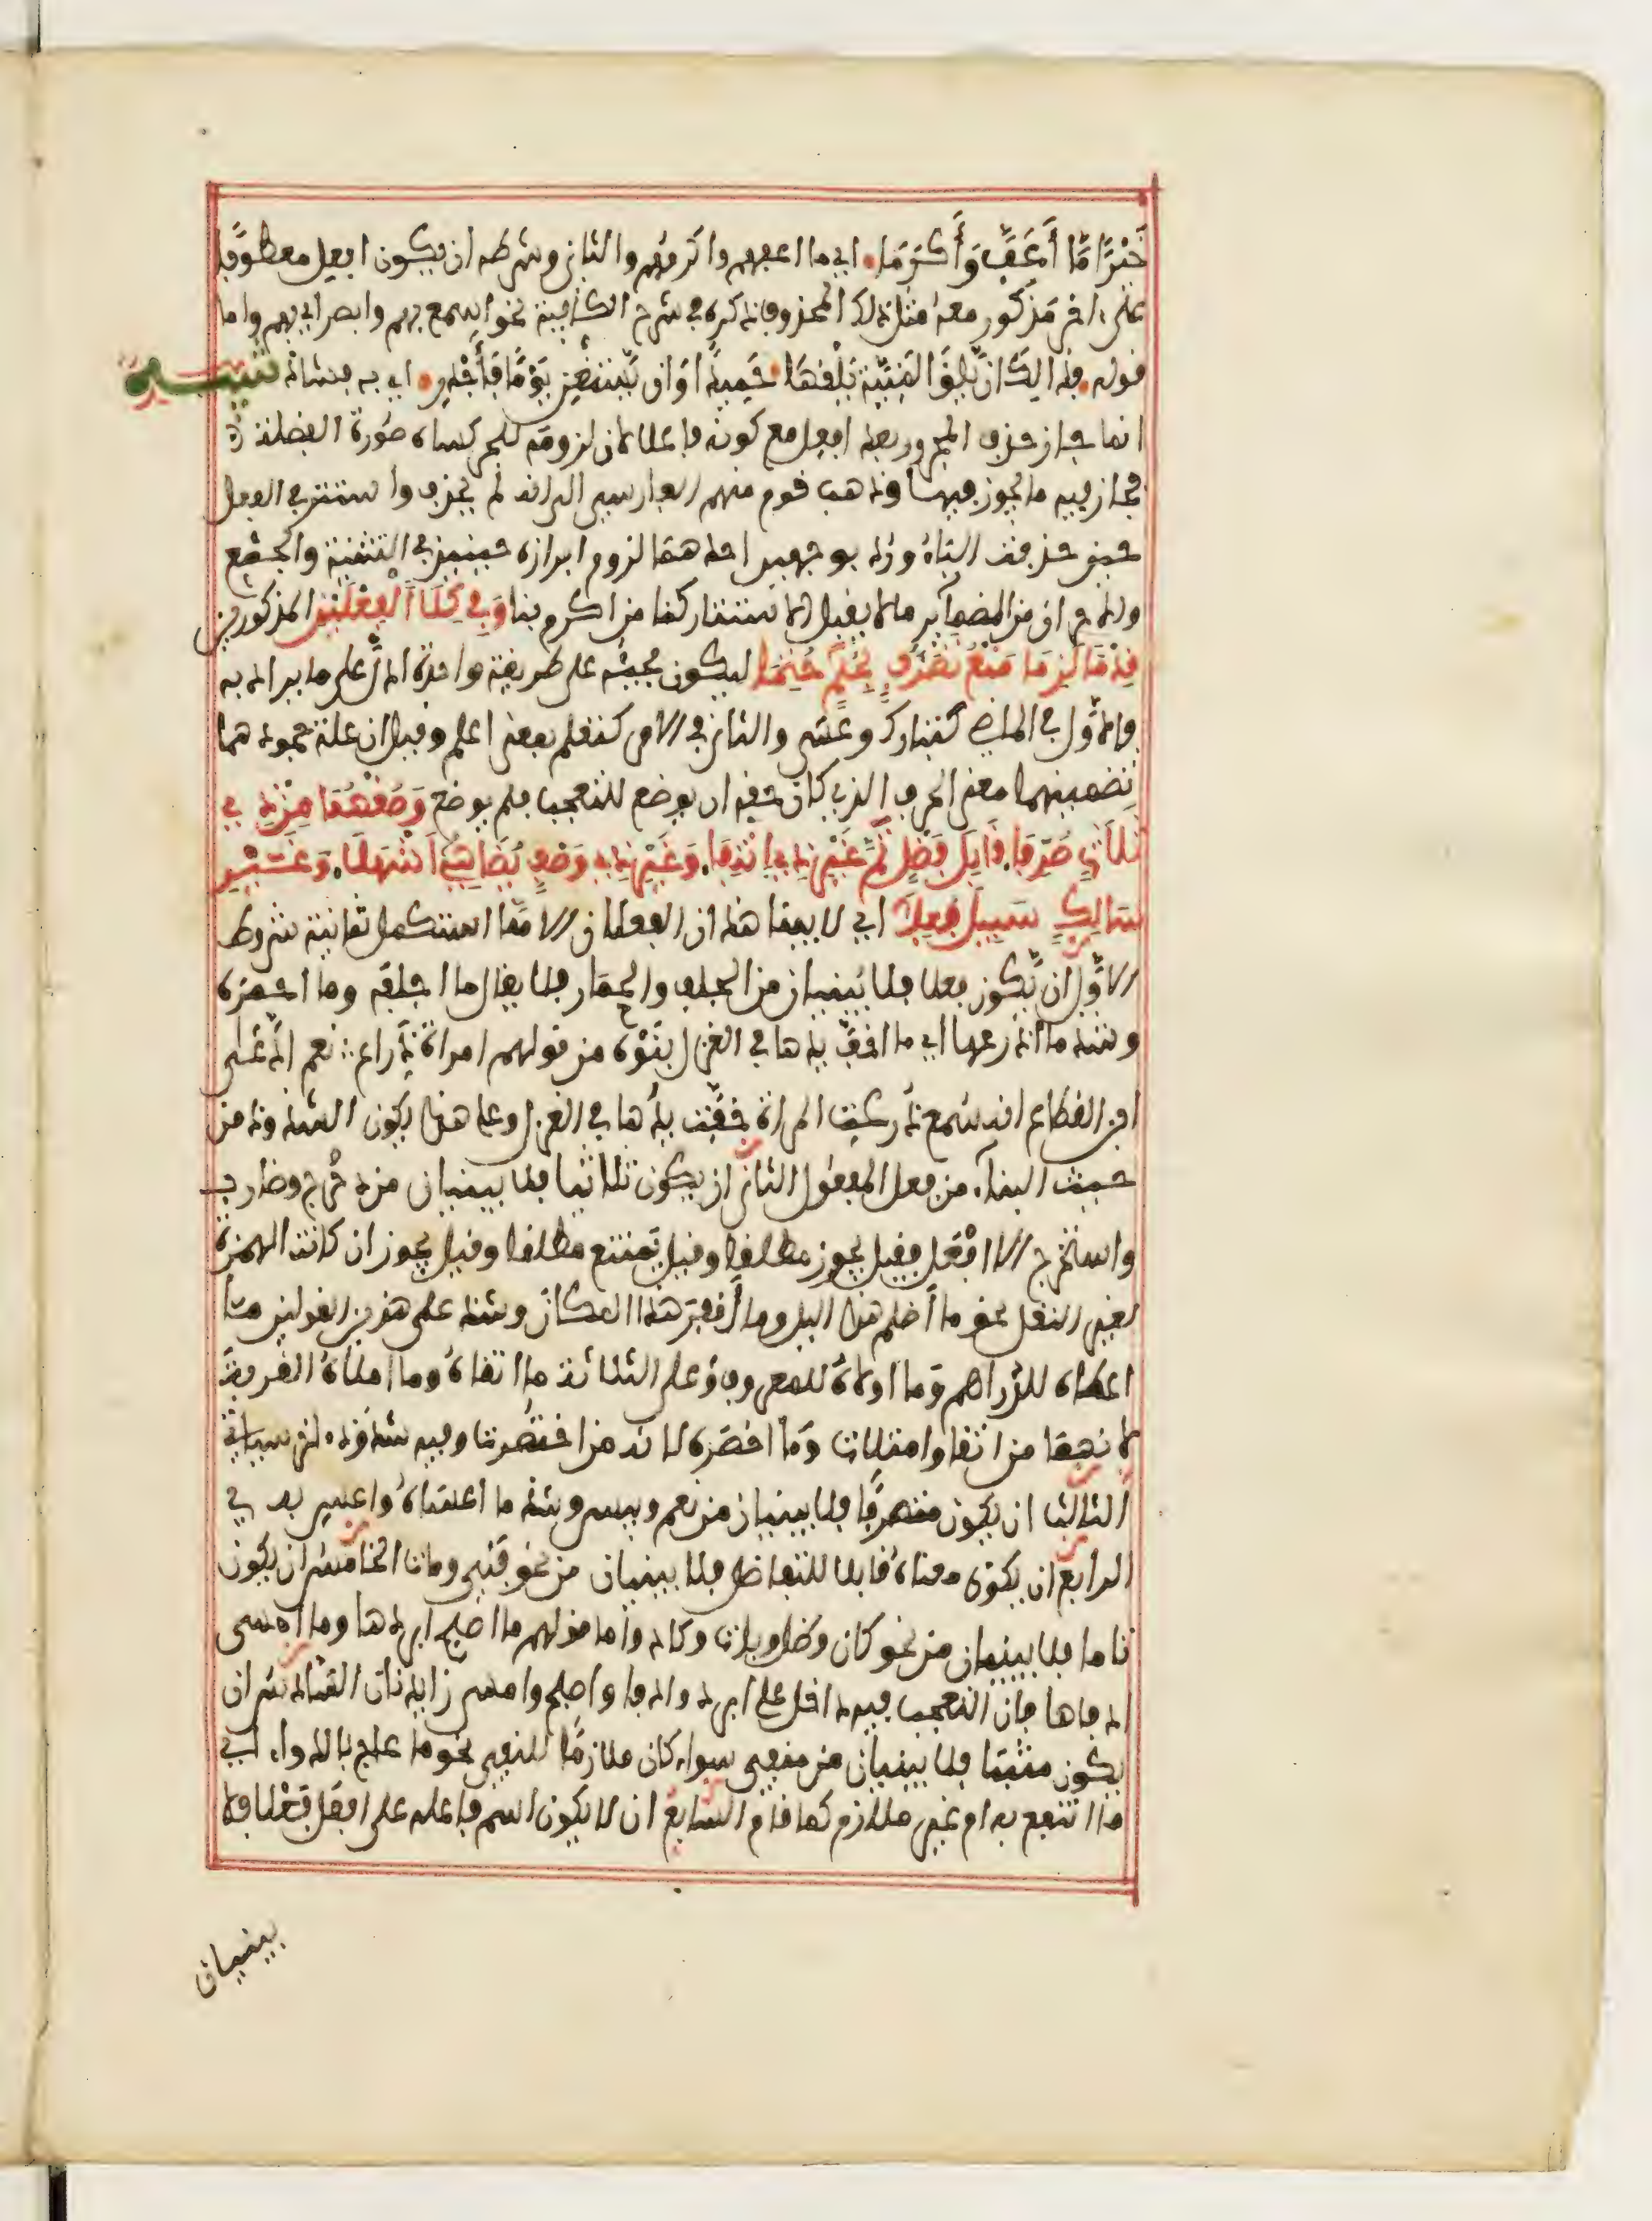 خَيْرًا مَّا أَعَفَّ وَأَكْرَمَا. اي ما اعفهم واكرمهم والثاني وشرطه ان يكون افعل معطوفا
على اخر مذكور معه مثل ذلك المحذوف ذكره في شرح الكافية نحو اسمع بهم وابصر اي بهم واما
قوله. فذالك ان يلق المنية يلقها. حميدا وان يستغن يوما فأجدر. اي به فشاذ تنبيه
انما جاز حذف المجرور بعد افعل مع كونه فاعلا لان لزومه للجر كساه صورة الفضلة
فجاز فيه ما يجوز فيها وذهب قوم منهم الفارسي الى انه لم يحذف واستتر في الفعل
حين حذفت الباء ورد بوجهين احدهما لزوم ابرازه حينيذ في التثنية والجمع
والاخر ان من الضماير ما لا يقبل الاستتار كنا من اكرم بنا وَفِي كِلَا الْفِعْلَيْنِ المذكورين
قِدْمًا لَزِمَا مَنْعُ تَصَرُّفٍ بِحُكْمٍ حُتِمَا ليكون مجيئه على طريقة واحدة ادل على ما يراد به
فالاول في الماضي كتبارك وعسى والثاني في الامر كتعلم بمعنى اعلم وقيل ان علة جمودهما
تضمينهما معنى الحرف الذي كان حقه ان يوضع للتعجب فلم يوضع وَصُغْهُمَا مِنْ ذِي
ثَلَاثٍ صُرِّفَا. قَابِلِ فَضْلٍ تَمَّ غَيْرِ ذِي انْتِفَا. وَغَيْرِ ذِي وَصْفٍ يُضَاهِي أَشْهَلَا. وَغَيْرِ
سَالِكٍ سَبِيلَ فُعِلَا اي لا يبنا هذان الفعلان الا مما استكمل ثمانية شروط
الاول ان يكون فعلا فلا يبنيان من الجلف والحمار فلا يقال ما اجلفه وما احمره
وشذ ما اذرعها اي ما اخف يدها في الغزل بنوه من قولهم امراة ذراع نعم
ابن القطاع انه سمع ذرعت المراة خفت يدها في الغزل وعلى هذا يكون الشذوذ من
حيث البناء من فعل المفعول الثاني ان يكون ثلاثيا فلا يبنيان من دحرج وضارب
واستخرج الا افعل فقيل يجوز مطلقا وقيل يمتنع مطلقا وقيل يجوز ان كانت الهمزة
لغير النقل نحو ما أظلم هذا اليل وما أقفر هذا المكان وشذ على هذين القولين ما
اعطاه للدراهم وما اولاه للمعروف وعلى الثلاثة ما اتقاه وما املأه القربة
لانهما من اتقا وامتلات وما اخصره لانه من اختصرت وفيه شذوذ اخر سياتي
الثالث ان يكون متصرفا فلا يبنيان من نعم وبيس وشذ ما اعساه واعس به
الرابع ان يكون معناه قابلا للتفاضل فلا يبنيان من نحو فني ومات الخامس ان يكون
تاما فلا يبنيان من نحو كان وظل وبات وكاد واما قولهم ما اصبح ابردها وما امسى
ادفاها فان التعجب فيه داخل على ابرد وادفا واصبح وامسى زايدتان السادس ان
يكون مثبتا فلا يبنيان من منفي سواء كان ملازما للنفي نحو ما عاج بالدواء اي
ما انتفع به ام غير ملازم كما قام السابع ان لا يكون اسم فاعله على افعل فعلا فلا
يبنيان